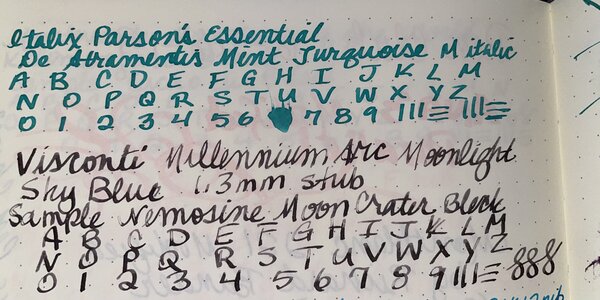 Italix Parson's Essential
De Atramentis Mint Turquoise M italic
A B C D E F G H I J K L M
N O P Q R S T U V W X Y Z
0 1 2 3 4 5 6 7 8 9
Visconti Millennium Arc Moonlight
Sky Blue 1.3mm stub
Sample Nemosine Moon Crater Black
A B C D E F G H I J K L M
N O P Q R S T U V W X Y Z
0 1 2 3 4 5 6 7 8 9 888